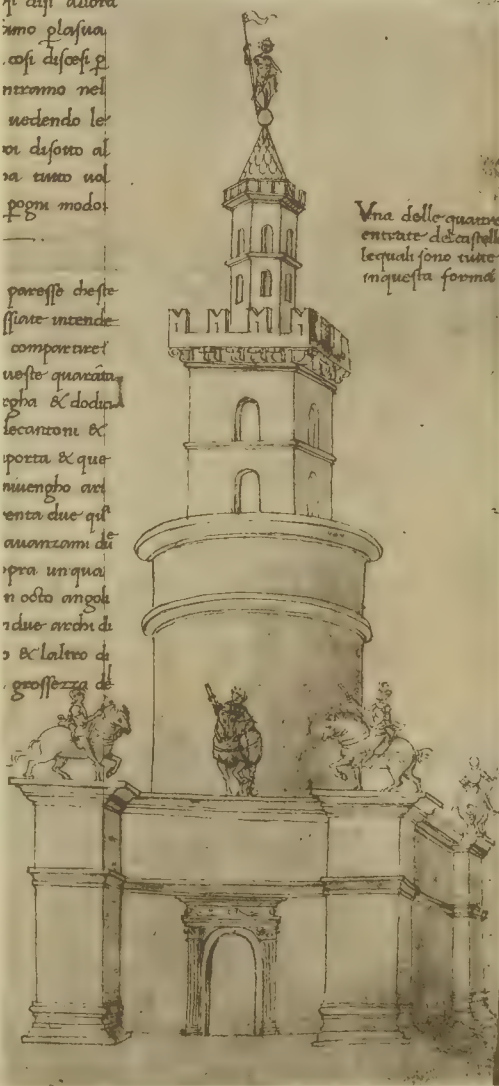 cosi disfi allora
amo plasua
cosi discesi p
ntramo nel
uedendo le
oi disotto al
a tutto uol
pogni modo:
paresse cheste
ssiate intende
compartire
ueste quaráta
rgha & dodici
lecantoni &
porta & que
niuengho ari
enta due qu
auanzami du
opra un qua
n octo angoli
n due archi di
o & laltro di
grossezza de
Una delle quattro
entrate del castell
lequali sono tutte
in questa forma